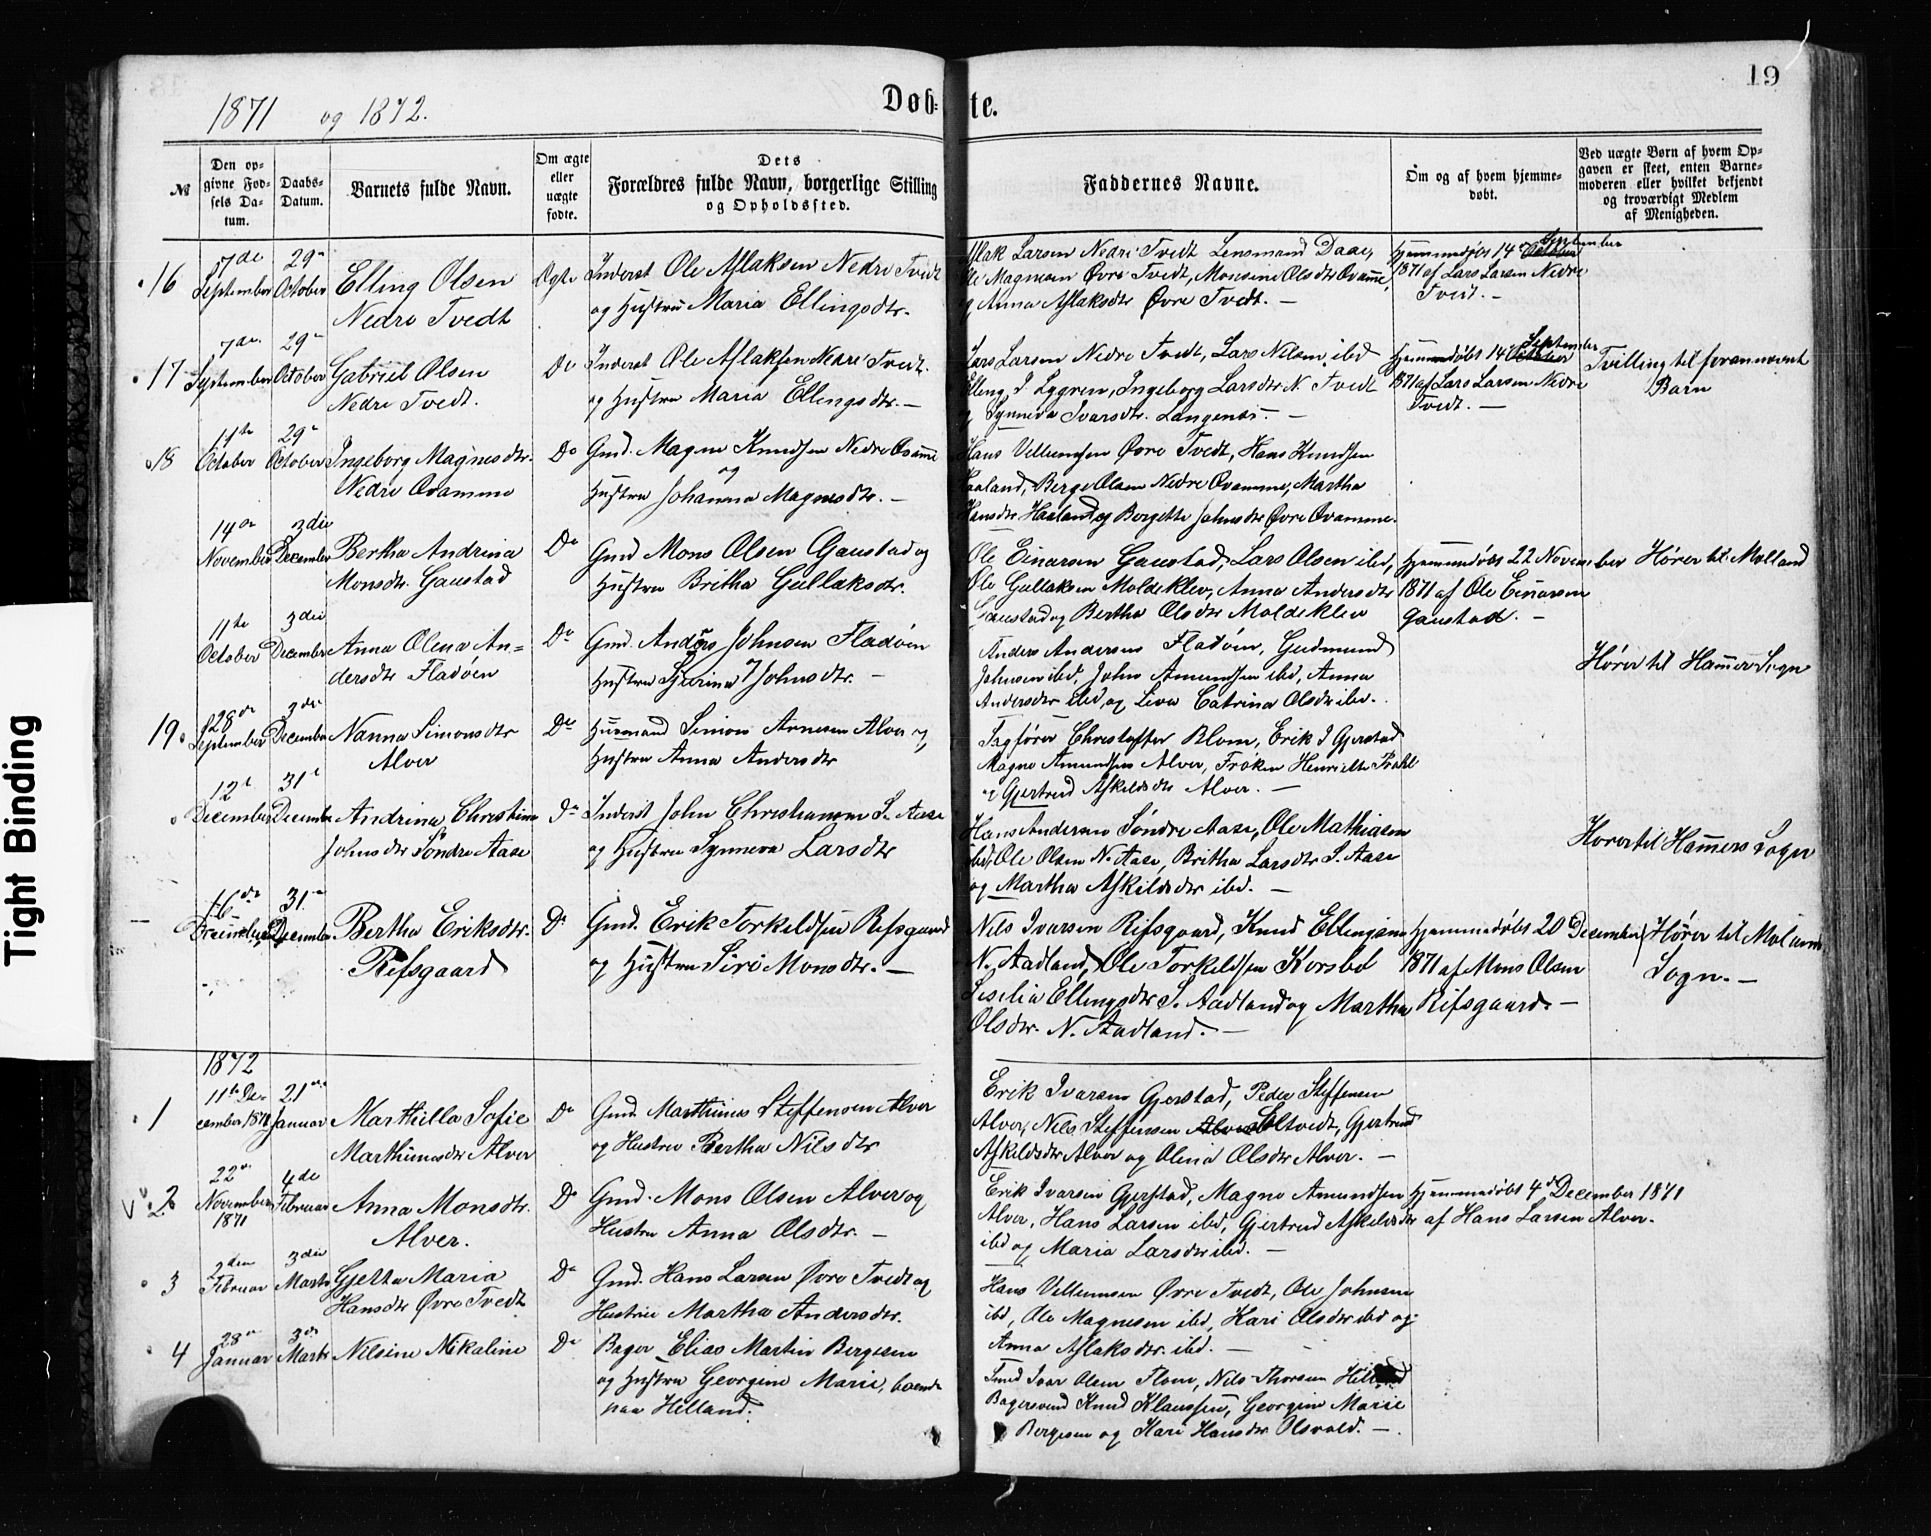 1871 og 1872.
Døb-
te.
19
№
Den op-
givne Fød-
sels Da-
tum.
Daabs-
Datum.
Barnets fulde Navn.
Om ægte
eller
uægte
fødte.
Dets
Forældres fulde Navn, borgerlige Stilling
og Opholdssted.
Faddernes Navne.
Om og af hvem hjemme-
døbt.
Ved uægte Børn af hvem Op-
gaven er skeet, enten Barne-
moderen eller hvilket bekjendt
og troværdigt Medlem
af Menigheden.
16
7de
September
29de
October
Elling Olsen
Nedre Tvedt
Ægte
Inderst Ole Aflaksen Nedre Tvedt
og Hustru Maria Ellingsdtr.
Aflak Larsen Nedre Tvedt Lensmand Daae,
Ole Magnesen Øvre Tvedt, Olsdtr Qvamme,
og Anna Aflaksdtr Øvre Tvedt. —
Hjemmedøbt 14de October September
1871 af Lars Larsen Nedre
Tvedt. —
17
7de
September
29de
October
Gabriel Olsen
Nedre Tvedt.
Do
Inderst Ole Aflaksen Nedre Tvedt.
og Hustru Maria Ellingsdtr. —
Lars Larsen Nedre Tvedt, Lars Nilsen ibd
Elling I. Lygren, Ingeborg Larsdtr N. Tvedt
og Synneva Ivarsdtr. Langenæs. —
Hjemmedøbt 14 October September
1871 af Lars Larsen Nedre
Tvedt. —
Tvilling til forannævnt
Barn
18
October
29de
October
Ingeborg Magnesdtr.
Nedre Qvamme
Do
Gmd. Magne Knudsen Nedre Qvamme
og
Hustru Johanna Magnesdtr. —
Hans Vellumsen Øvre Tvedt, Hans Knudsen
Haaland, Berge Olsen Nedre Qvamme, Martha
Hansdtr Haaland og Bergette Johnsdtr Øvre Qvamme.
14de
November
3die
December
Bertha Andrina
Monsdtr. Gaustad
Do
Gmd Mons Olsen Gaustad og
Hustru Britha Gullaksdtr.
Ole Einarsen Gaustad, Lars Olsen ibd,
Ole Gullaksen Moldeklev, Anna Andersdtr
Gaustad og Bertha Olsdtr Moldeklev
Hjemmedøbt 22 November
1871 af Ole Einarsen
Gaustad. —
Hører til Molland
11te
October
3die
December
Anna Olena An=
dersdtr Fladøen
Do
Gmd. Anders Johnsen Fladøen
og
Hustru Johnsdtr. —
Anders Andersen Fladøen, Gudmund
Johnsen ibd, John Amundsen ibd, Anna
Andersdtr ibd, og Liva Catrina Olsdtr ibd.
Hører til Hammer Sogn
19
28de
September
3die
December
Nanna Simonsdtr
Alver
Do
Husmand Simon Arnesen Alver og
Hustru Anna Andersdtr
Sagfører Christoffer Blom, Erik I Gjerstad
Magne Amundsen Alver, Frøken Henriette Prahl
og Gjertrud Askildsdtr Alver. —
12te
December
31te
December
Andrina Christine
Johnsdtr Søndre Aase
Do
Inderst John Christiansen S. Aase
og Hustru Synneva Larsdtr
Hans Andersen Søndre Aase, Ole Mathiasen
ibd, Ole Olsen N. Aase, Britha Larsdtr S. Aase
og Martha Askildsdtr ibd. —
Hører til Hammers Sogn
16de
December
31te
December
Bertha Eriksdtr.
Rifsgaard
Do
Gmd. Erik Torkildsen Rifsgaard
og Hustru Siri Monsdtr. —
Nils Ivarsen Rifsgaard, Knud Ellingsen
N. Aadland, Ole Torkildsen Korsbø
Sesilia Ellingsdtr S. Aadland og Martha
Olsdtr. N. Aadland. —
Hjemmedøbt 20 December
1871 af Mons Olsen
Rifsgaard. —
Hører til Molland
Sogn. —
1872
1
11te De-
cember 1871
21de
Januar
Marthilla Sofie
Marthinusdtr Alver
Do
Gmd. Marthinus Steffensen Alver
og Hustru Bertha Nilsdtr
Erik Ivarsen Gjerstad, Peder Steffensen
Alver, Nils Steffensen Alver Eltvedt, Gjertrud
Askildsdtr Alver og Olena Olsdtr Alver. —
2
22de
November
1871
4de
Februar
Anna Monsdtr.
Alver.
Do
Gmd. Mons Olsen Alver og
Hustru Anna Olsdtr. —
Erik Ivarsen Gjerstad, Magne Amundsen
Alver, Hans Larsen ibd, Gjertrud Askildsdtr
ibd og Maria Larsdtr ibd. —
Hjemmedøbt 4de December 1871
af Hans Larsen Alver.
3
Februar
3die
Marts
Gjetta Maria
Hansdtr Øvre Tvedt
Do
Gmd. Hans Larsen Øvre Tvedt og
Hustru Martha Andersdtr.
Hans Vellumsen Øvre Tvedt, Ole Johnsen
ibd, Ole Magnesen ibd, Kari Olsdtr ibd og
Anna Aflaksdtr. ibd. —
4
28de
Januar
3die
Marts
Nilsine Nikaline
Do
Bager Elias Martin Bergesen
og Hustru Georgine Marie, boende
paa Helland.
Ivar Olsen Flom, Nils Thorsen Helland
Bagersvend Knud Klaussen, Georgine Marie
Bergesen og Kari Hansdtr Olsvold. —
Tight Binding